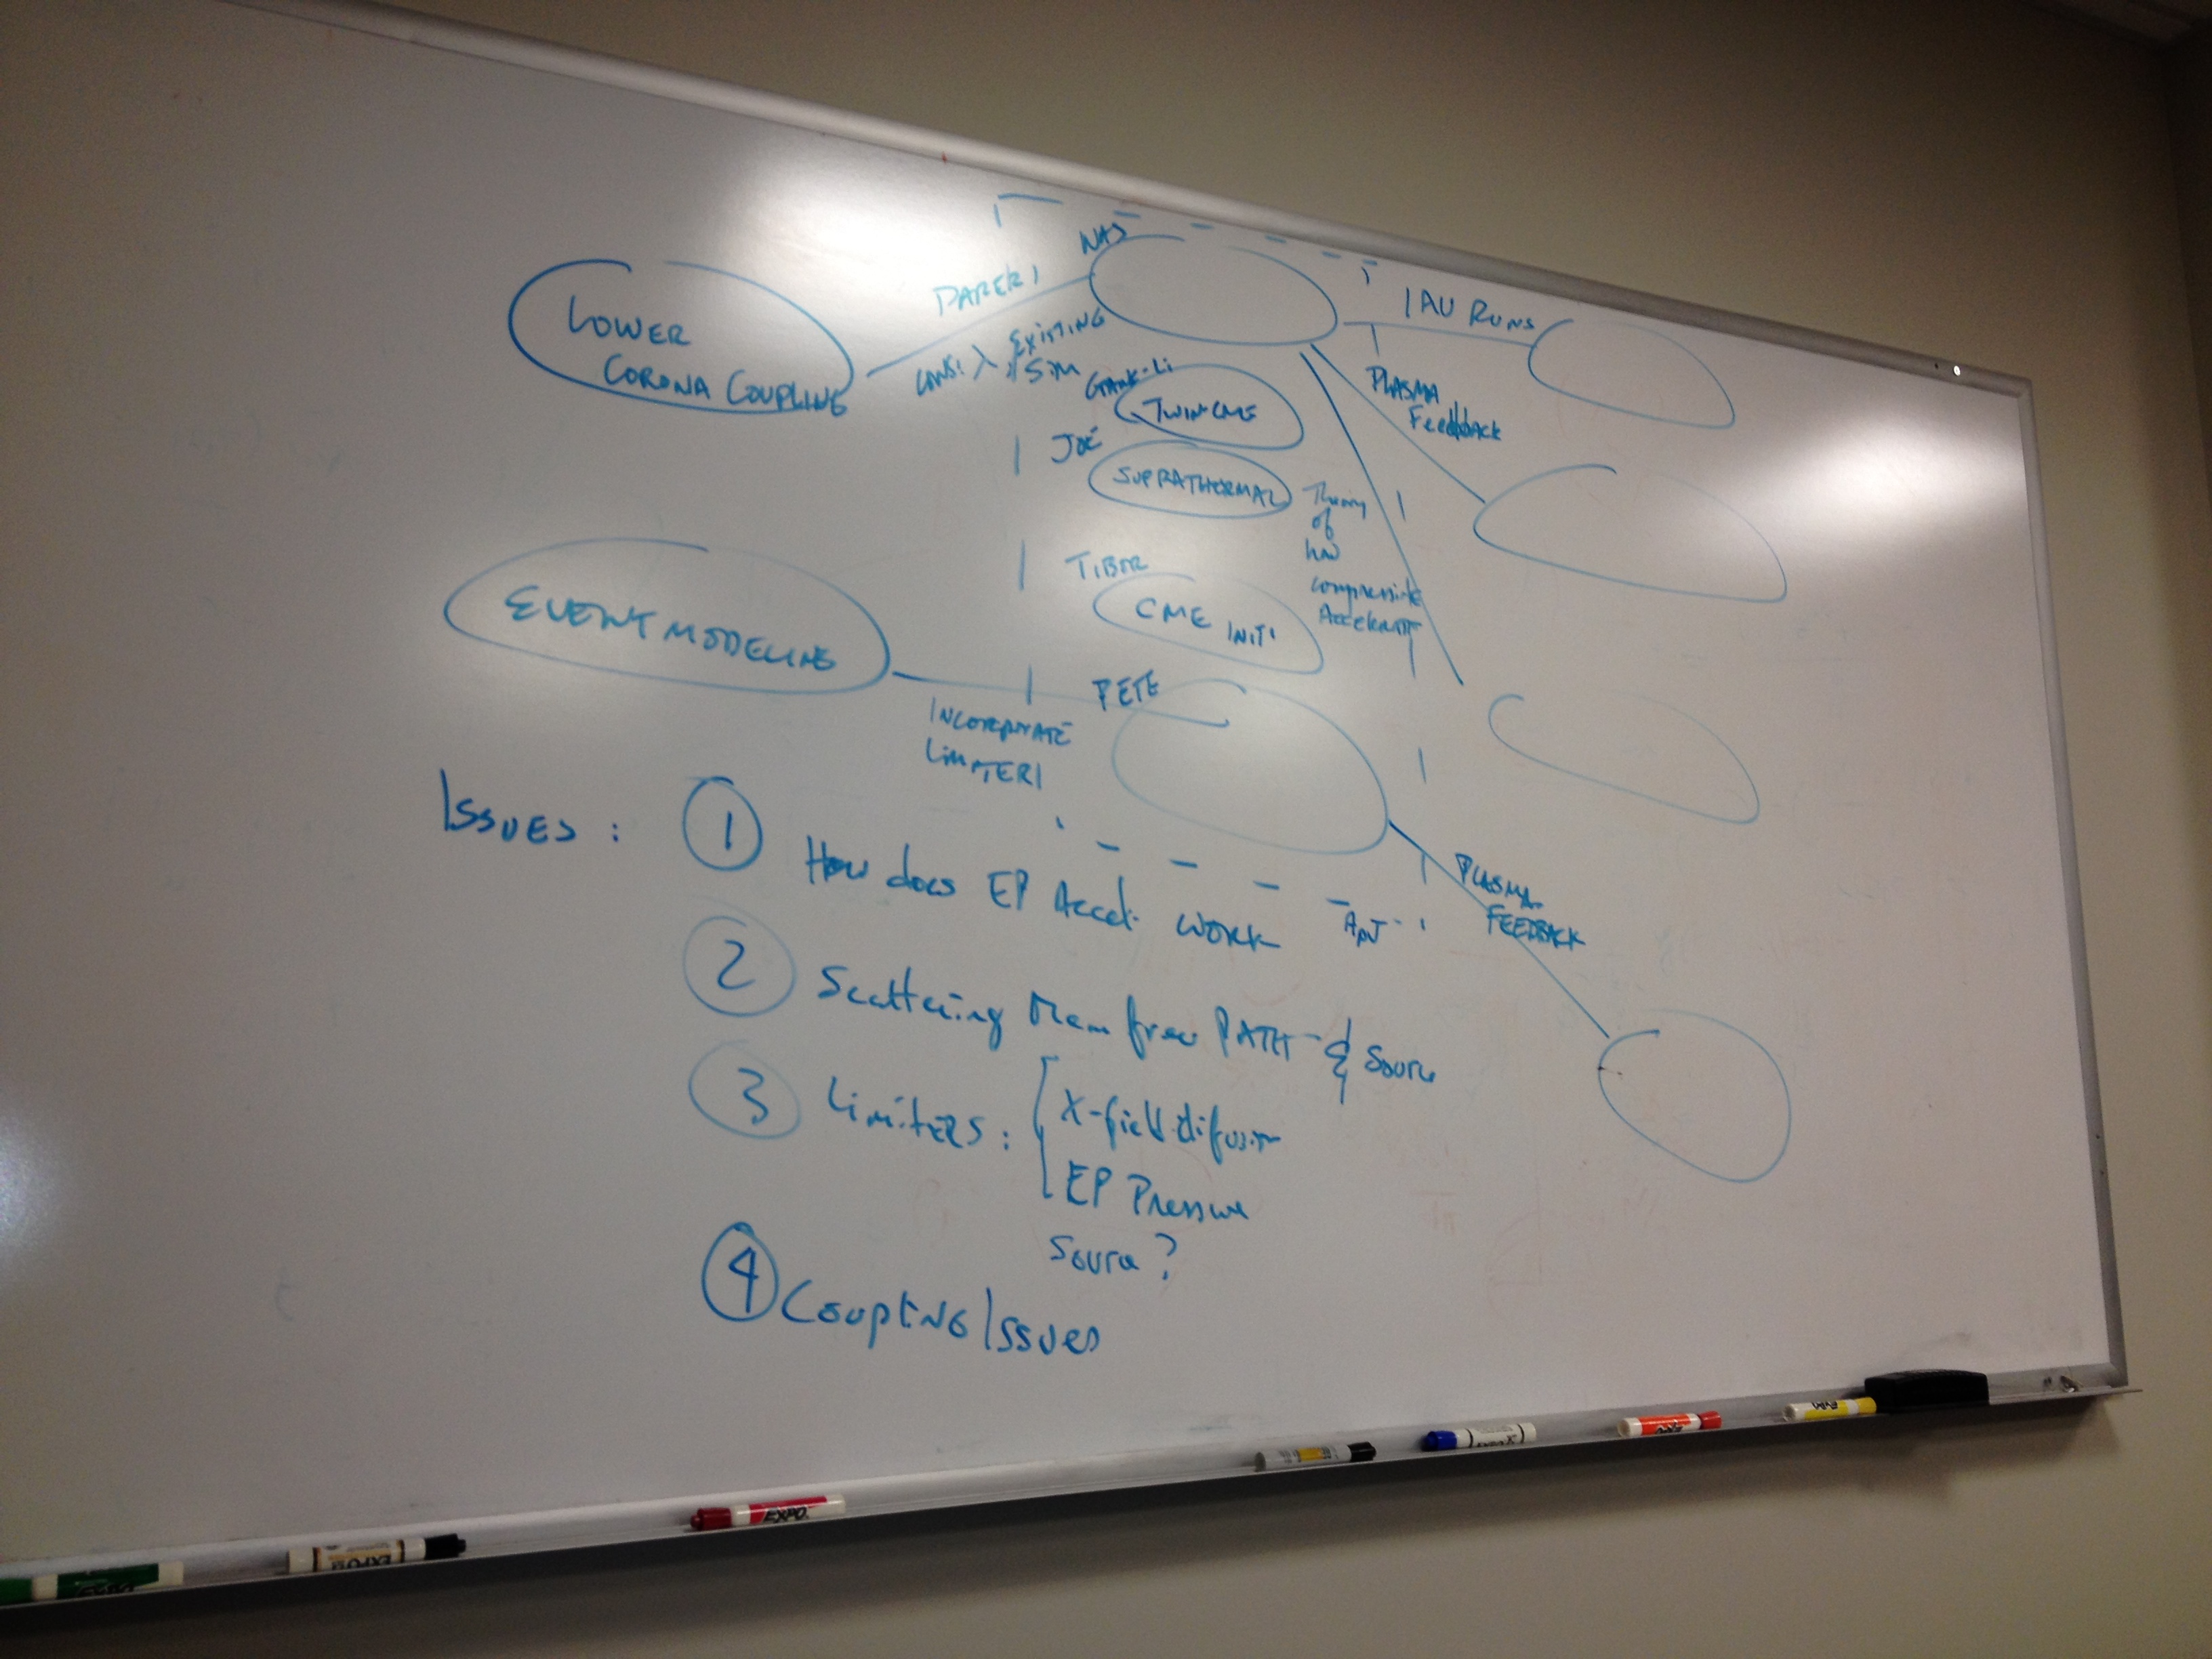 LOWER
CORONA COUPLING
PAPER 1
CONST λ
EXISTING
SIM
1 AU RUNS
PLASMA
Feedback
TWIN CME
JOE
SUPRATHERMAL
Theory
of
how
compressive
TIBOR
CME INIT'
EVENT MODELING
PETE
INCORPORATE
LIMITER
PLASMA
FEEDBACK
ISSUES :
1 How does EP Accel. WORK
2 Scattering Mean free PATH & Source
3 LimiTERS : X-field difusion
EP Pressure
Source ?
4 Coupling Issues
EXPO